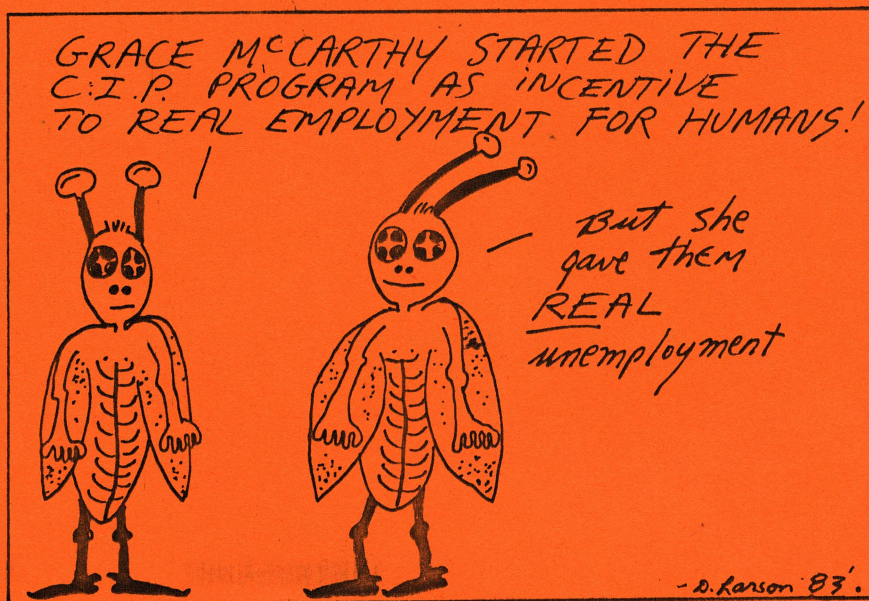 GRACE McCARTHY STARTED THE
C.I.P. PROGRAM AS INCENTIVE
TO REAL EMPLOYMENT FOR HUMANS!
But she
gave them
REAL
unemployment
- D. Larson 83'.